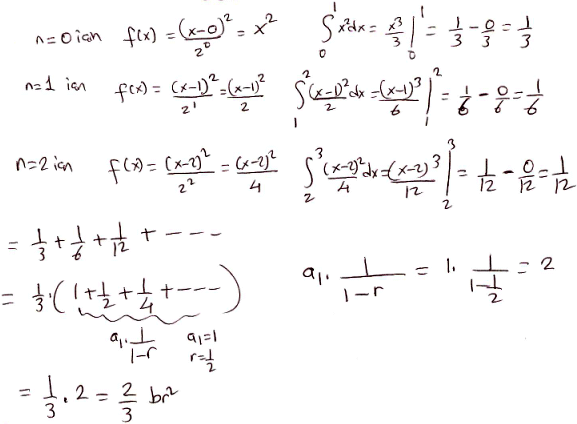 n=0 için f(x) = (x-0)²/2⁰ = x² ∫₀¹ x²dx = x³/3 |₀¹ = 1/3 - 0/3 = 1/3
n=1 için f(x) = (x-1)²/2¹ = (x-1)²/2 ∫₁² (x-1)²/2 dx = (x-1)³/6 |₁² = 1/6 - 0/6 = 1/6
n=2 için f(x) = (x-2)²/2² = (x-2)²/4 ∫₂³ (x-2)²/4 dx = (x-2)³/12 |₂³ = 1/12 - 0/12 = 1/12
= 1/3 + 1/6 + 1/12 + ---
= 1/3 · (1 + 1/2 + 1/4 + ---) a₁ · 1/(1-r) = 1 · 1/(1-1/2) = 2
a₁ · 1/(1-r) a₁=1
r=1/2
= 1/3 . 2 = 2/3 br²